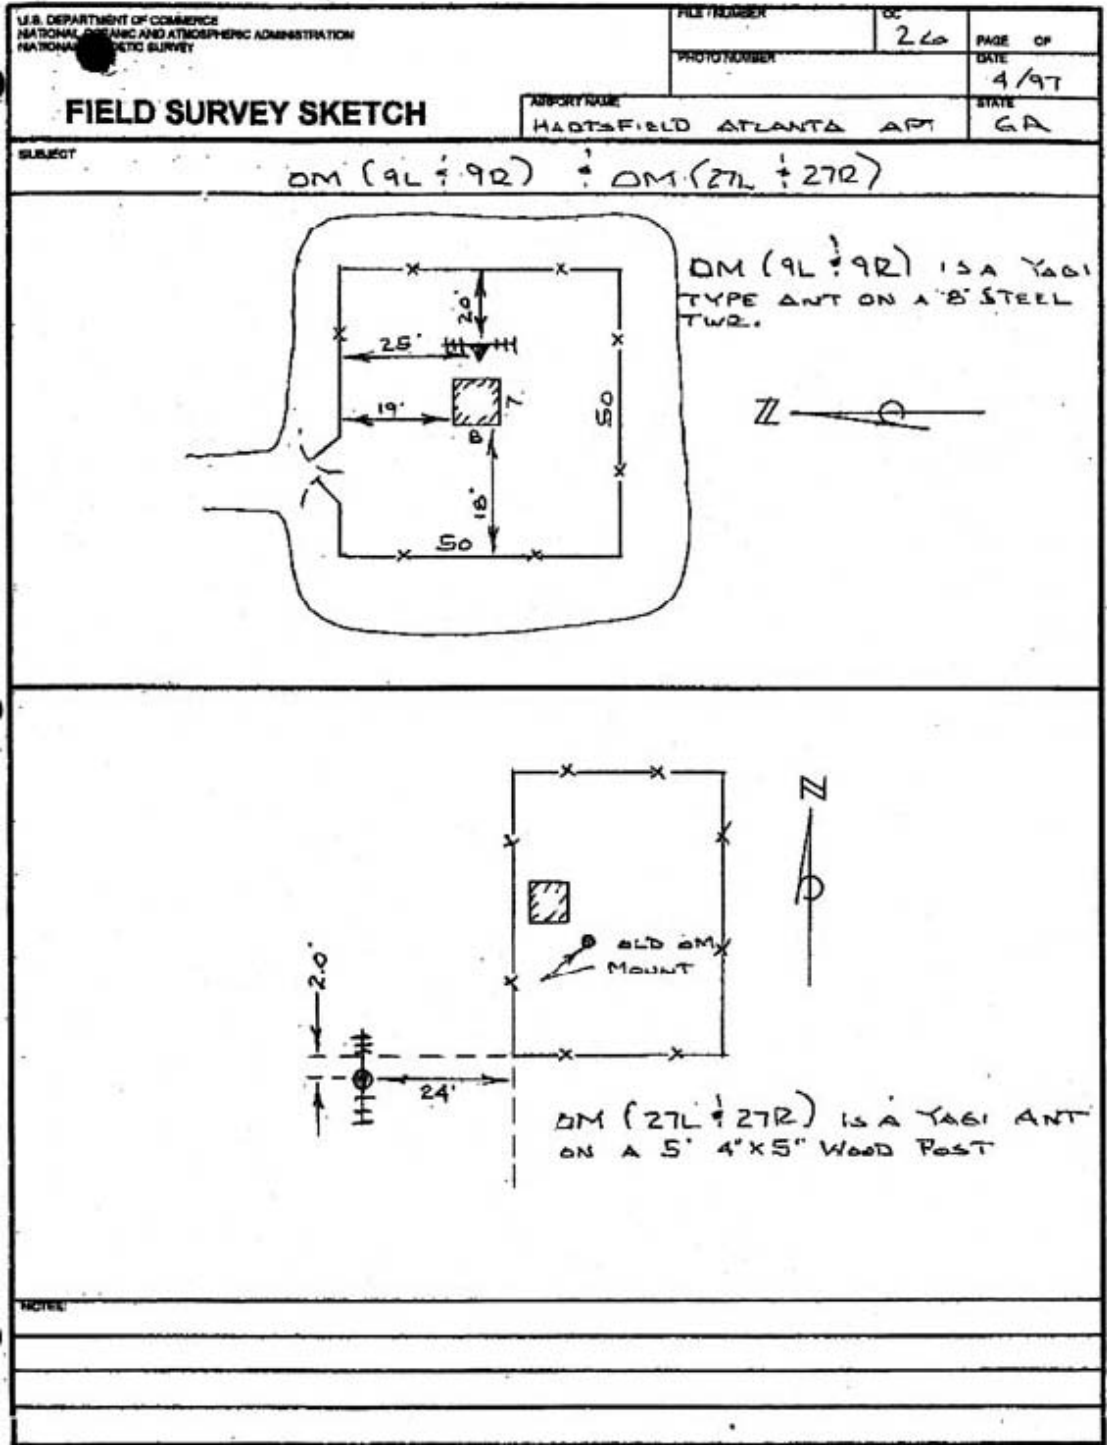 U.S. DEPARTMENT OF COMMERCE
NATIONAL OCEANIC AND ATMOSPHERIC ADMINISTRATION
NATIONAL GEODETIC SURVEY
FIELD SURVEY SKETCH
FILE NUMBER
OC
PAGE OF
PHOTO NUMBER
DATE
4/97
AIRPORT NAME
HARTSFIELD ATLANTA APT
STATE
GA
SUBJECT
OM (9L & 9R) & OM (27L & 27R)
OM (9L & 9R) IS A YAGI
TYPE ANT ON A 8' STEEL
TWR.
20'
25'
19'
7
8
50
18'
50
N
N
OLD OM
MOUNT
2.0'
24'
OM (27L & 27R) IS A YAGI ANT
ON A 5' 4"X5" WOOD POST
NOTES: